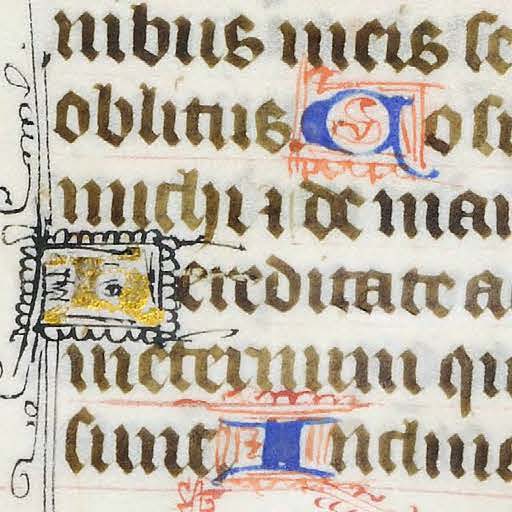 nibus meis se
oblitus Posu
michi ⁊ de man
Hereditate a
ineternum qu
sunt Inclina